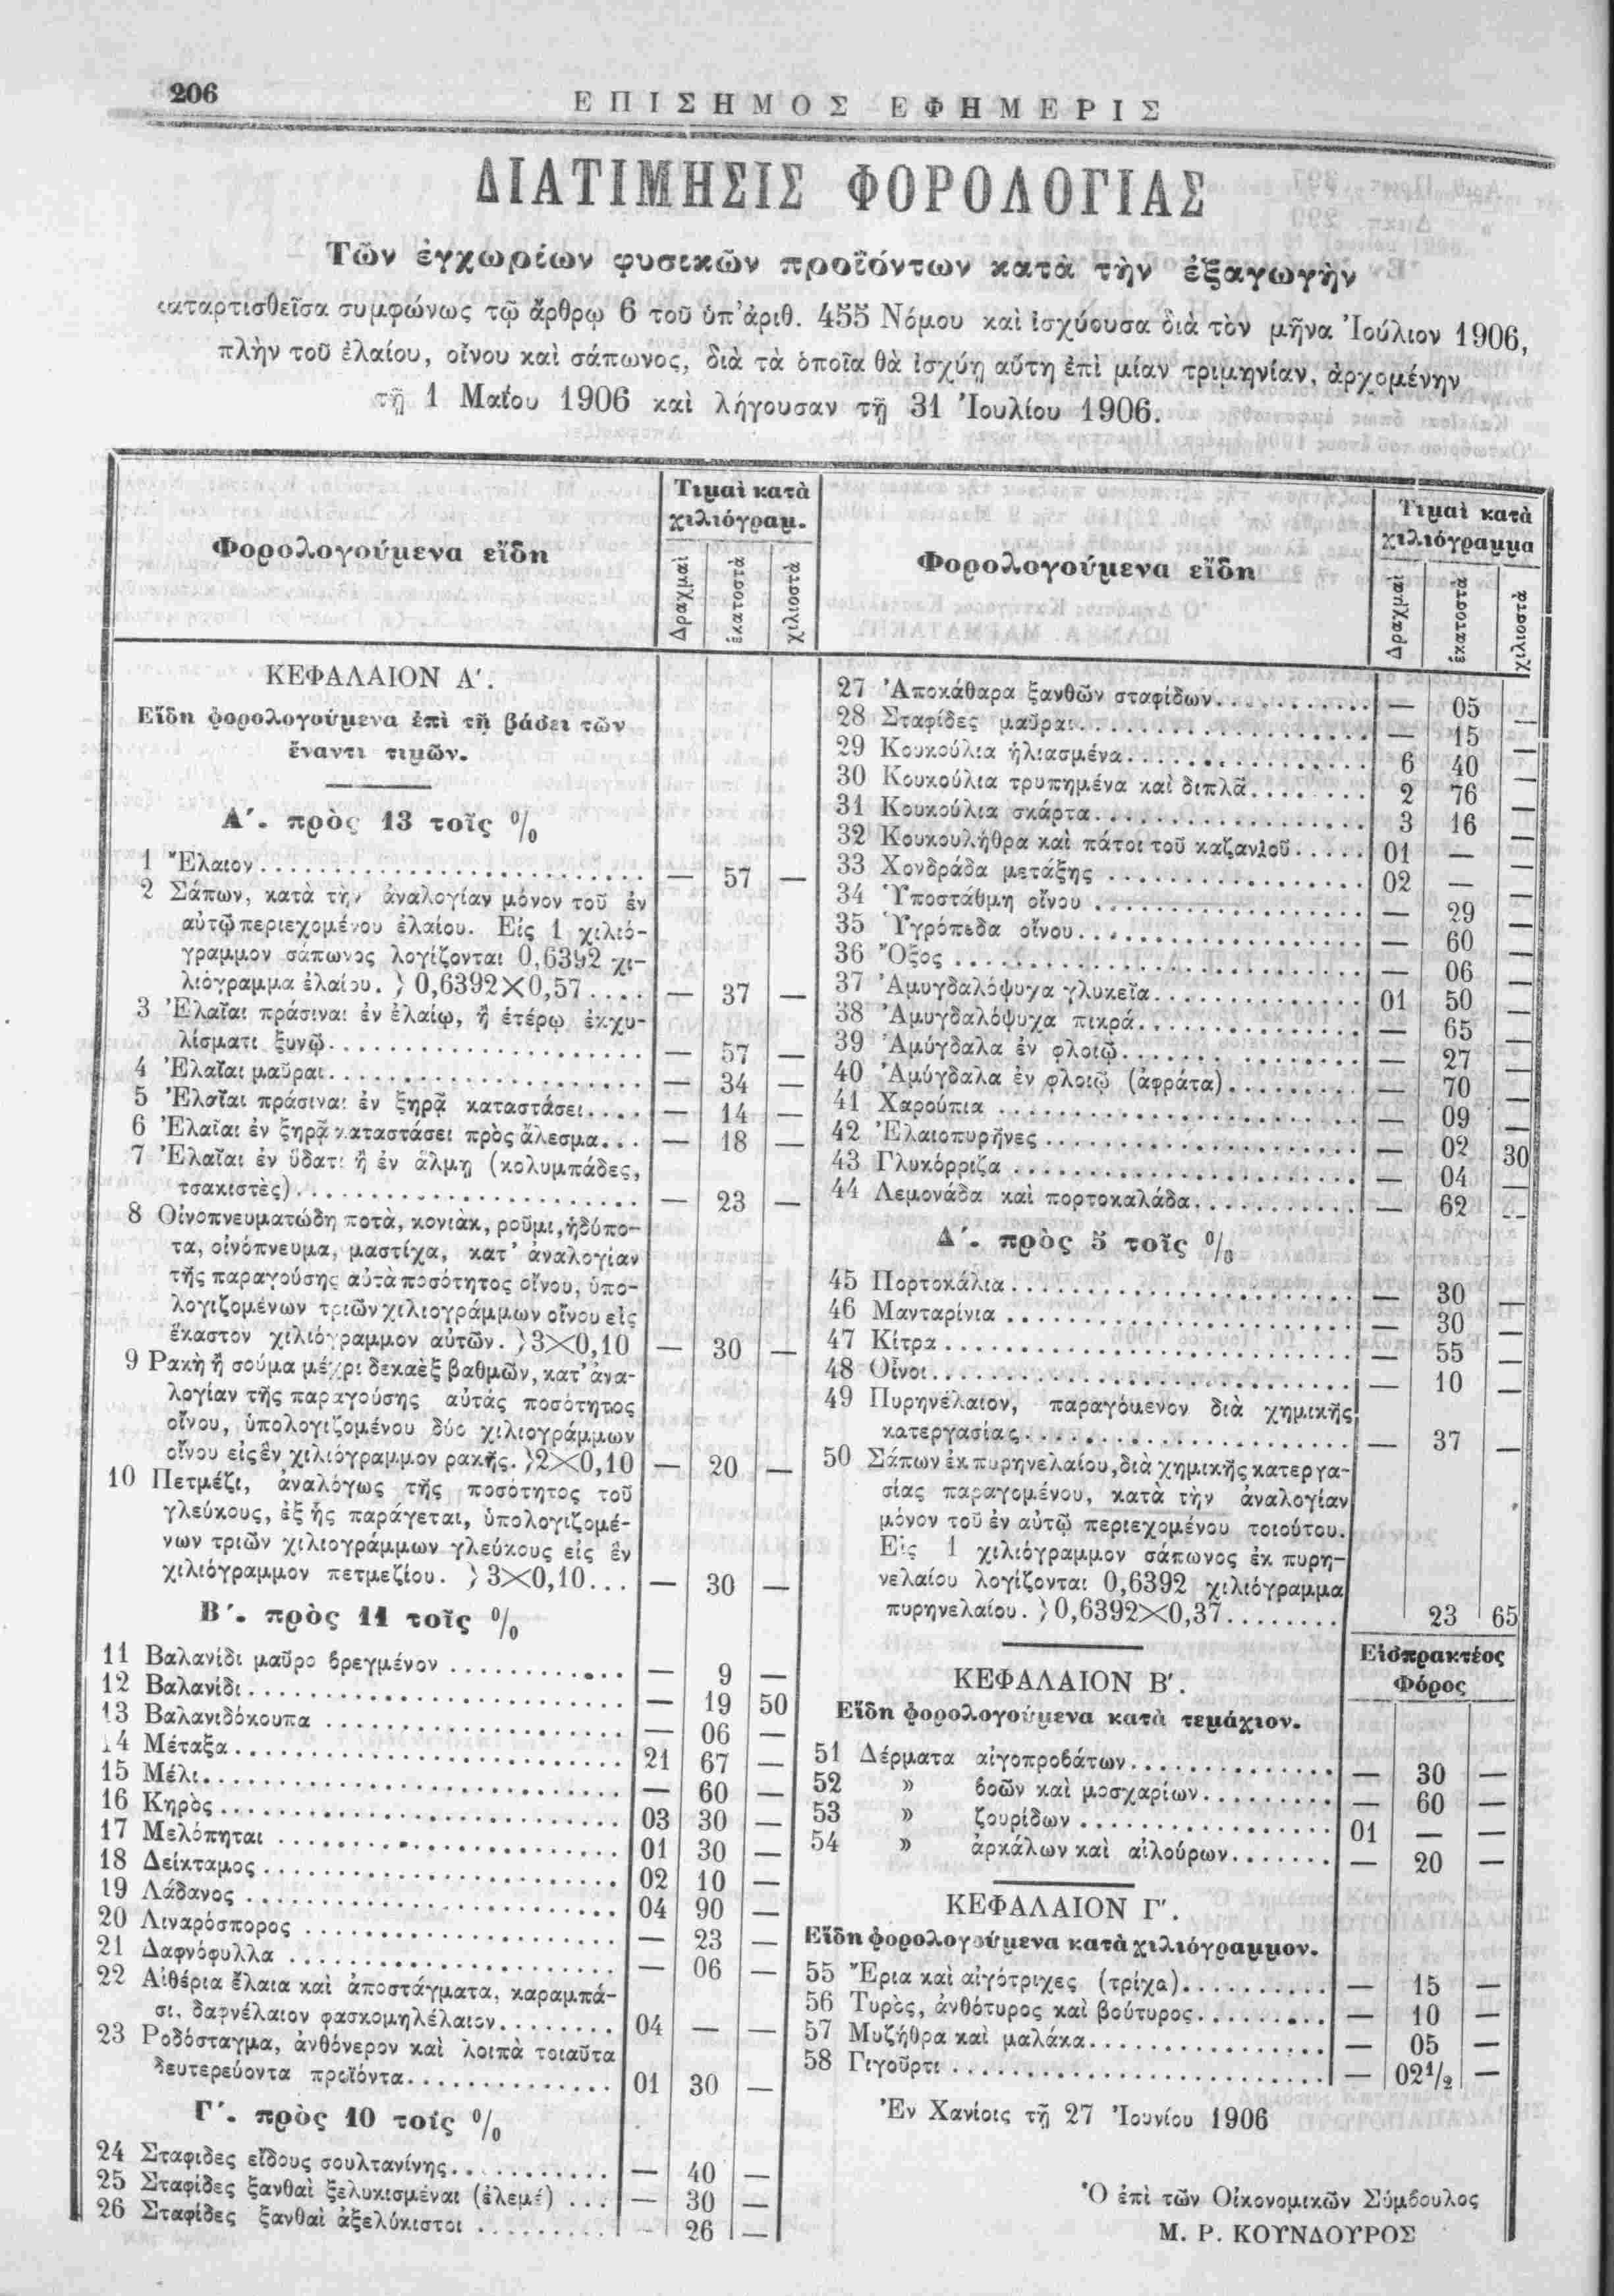 206
ΕΠΙΣΗΜΟΣ ΕΦΗΜΕΡΙΣ
ΔΙΑΤΙΜΗΣΙΣ ΦΟΡΟΛΟΓΙΑΣ
Τῶν ἐγχωρίων φυσικῶν προϊόντων κατὰ τὴν ἐξαγωγὴν
καταρτισθεῖσα συμφώνως τῷ ἄρθρῳ 6 τοῦ ὑπ' ἀριθ. 455 Νόμου καὶ ἰσχύουσα διὰ τὸν μῆνα Ἰούλιον 1906,
πλὴν τοῦ ἐλαίου, οἴνου καὶ σάπωνος, διὰ τὰ ὁποῖα θὰ ἰσχύῃ αὕτη ἐπὶ μίαν τριμηνίαν, ἀρχομένην
τῇ 1 Μαΐου 1906 καὶ λήγουσαν τῇ 31 Ἰουλίου 1906.
Φορολογούμενα εἴδη
Τιμαὶ κατὰ
χιλιόγραμ.
Δραχμαὶ
ἑκατοστὰ
χιλιοστὰ
ΚΕΦΑΛΑΙΟΝ Α'.
Εἴδη φορολογούμενα ἐπὶ τῇ βάσει τῶν
ἔναντι τιμῶν.
Α'. πρὸς 13 τοῖς %
1 Ἔλαιον — 57 —
2 Σάπων, κατὰ τὴν ἀναλογίαν μόνον τοῦ ἐν
αὐτῷ περιεχομένου ἐλαίου. Εἰς 1 χιλιό-
γραμμον σάπωνος λογίζονται 0,6392 χι-
λιόγραμμα ἐλαίου. } 0,6392×0,57 — 37 —
3 Ἐλαῖαι πράσιναι ἐν ἐλαίῳ, ἢ ἑτέρῳ ἐκχυ-
λίσματι ξυνῷ — 57 —
4 Ἐλαῖαι μαῦραι — 34 —
5 Ἐλαῖαι πράσιναι ἐν ξηρᾷ καταστάσει — 14 —
6 Ἐλαῖαι ἐν ξηρᾷ καταστάσει πρὸς ἄλεσμα — 18 —
7 Ἐλαῖαι ἐν ὕδατι ἢ ἐν ἅλμῃ (κολυμπάδες,
τσακιστὲς) — 23 —
8 Οἰνοπνευματώδη ποτὰ, κονιὰκ, ροῦμι, ἡδύπο-
τα, οἰνόπνευμα, μαστίχα, κατ' ἀναλογίαν
τῆς παραγούσης αὐτὰ ποσότητος οἴνου, ὑπο-
λογιζομένων τριῶν χιλιογράμμων οἴνου εἰς
ἕκαστον χιλιόγραμμον αὐτῶν. } 3×0,10 — 30 —
9 Ρακὴ ἢ σούμα μέχρι δεκαὲξ βαθμῶν, κατ' ἀνα-
λογίαν τῆς παραγούσης αὐτάς ποσότητος
οἴνου, ὑπολογιζομένου δύο χιλιογράμμων
οἴνου εἰς ἓν χιλιόγραμμον ρακῆς. } 2×0,10 — 20 —
10 Πετμέζι, ἀναλόγως τῆς ποσότητος τοῦ
γλεύκους, ἐξ ἧς παράγεται, ὑπολογιζομέ-
νων τριῶν χιλιογράμμων γλεύκους εἰς ἓν
χιλιόγραμμον πετμεζίου. } 3×0,10 — 30 —
Β'. πρὸς 11 τοῖς %
11 Βαλανίδι μαῦρο βρεγμένον — 9 —
12 Βαλανίδι — 19 50
13 Βαλανιδόκουπα — 06 —
14 Μέταξα 21 67 —
15 Μέλι — 60 —
16 Κηρὸς 03 30 —
17 Μελόπηται 01 30 —
18 Δείκταμος 02 10 —
19 Λάδανος 04 90 —
20 Λιναρόσπορος — 23 —
21 Δαφνόφυλλα — 06 —
22 Αἰθέρια ἔλαια καὶ ἀποστάγματα, καραμπά-
σι, δαφνέλαιον φασκομηλέλαιον 04 — —
23 Ροδόσταγμα, ἀνθόνερον καὶ λοιπὰ τοιαῦτα
δευτερεύοντα προϊόντα 01 30 —
Γ'. πρὸς 10 τοῖς %
24 Σταφιδες εἴδους σουλτανίνης — 40 —
25 Σταφίδες ξανθαὶ ξελυκισμέναι (ἐλεμέ) — 30 —
26 Σταφίδες ξανθαὶ ἀξελύκιστοι — 26 —
Φορολογούμενα εἴδη
Τιμαὶ κατὰ
χιλιόγραμμα
Δραχμαὶ
ἑκατοστὰ
χιλιοστὰ
27 Ἀποκάθαρα ξανθῶν σταφίδων — 05 —
28 Σταφίδες μαῦραι — 15 —
29 Κουκούλια ἡλιασμένα 6 40 —
30 Κουκούλια τρυπημένα καὶ διπλᾶ 2 76 —
31 Κουκούλια σκάρτα 3 16 —
32 Κουκουλήθρα καὶ πάτοι τοῦ καζανιοῦ 01 — —
33 Χονδράδα μετάξης 02 — —
34 Ὑποστάθμη οἴνου — 29 —
35 Ὑγρόπεδα οἴνου — 60 —
36 Ὄξος — 06 —
37 Ἀμυγδαλόψυχα γλυκεῖα 01 50 —
38 Ἀμυγδαλόψυχα πικρά — 65 —
39 Ἀμύγδαλα ἐν φλοιῷ — 27 —
40 Ἀμύγδαλα ἐν φλοιῷ (ἀφράτα) — 70 —
41 Χαρούπια — 09 —
42 Ἐλαιοπυρῆνες — 02 30
43 Γλυκόρριζα — 04 —
44 Λεμονάδα καὶ πορτοκαλάδα — 62 —
Δ'. πρὸς 5 τοῖς %
45 Πορτοκάλια — 30 —
46 Μανταρίνια — 30 —
47 Κίτρα — 55 —
48 Οἶνοι — 10 —
49 Πυρηνέλαιον, παραγόμενον διὰ χημικῆς
κατεργασίας — 37 —
50 Σάπων ἐκ πυρηνελαίου, διὰ χημικῆς κατεργα-
σίας παραγομένου, κατὰ τὴν ἀναλογίαν
μόνον τοῦ ἐν αὐτῷ περιεχομένου τοιούτου.
Εἰς 1 χιλιόγραμμον σάπωνος ἐκ πυρη-
νελαίου λογίζονται 0,6392 χιλιόγραμμα
πυρηνελαίου. } 0,6392×0,37 23 65
Εἰσπρακτέος
Φόρος
ΚΕΦΑΛΑΙΟΝ Β'.
Εἴδη φορολογούμενα κατὰ τεμάχιον.
51 Δέρματα αἰγοπροβάτων — 30 —
52 » βοῶν καὶ μοσχαρίων — 60 —
53 » ζουρίδων 01 — —
54 » ἀρκάλων καὶ αἰλούρων — 20 —
ΚΕΦΑΛΑΙΟΝ Γ'.
Εἴδη φορολογούμενα κατὰ χιλιόγραμμον.
55 Ἔρια καὶ αἰγότριχες (τρίχα) — 15 —
56 Τυρὸς, ἀνθότυρος καὶ βούτυρος — 10 —
57 Μυζήθρα καὶ μαλάκα — 05 —
58 Γιγοῦρτι — 02½ —
Ἐν Χανίοις τῇ 27 Ἰουνίου 1906
Ὁ ἐπὶ τῶν Οἰκονομικῶν Σύμβουλος
Μ. Ρ. ΚΟΥΝΔΟΥΡΟΣ